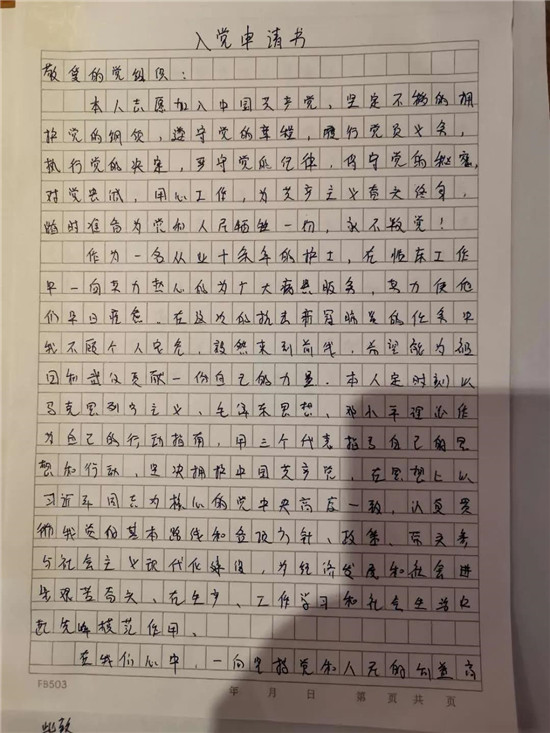 入党申请书
敬爱的党组织：
本人志愿加入中国共产党，坚定不移的拥
护党的纲领，遵守党的章程，履行党员义务，
执行党的决定，严守党的纪律，保守党的秘密，
对党忠诚，用心工作，为共产主义奋斗终身，
随时准备为党和人民牺牲一切，永不叛党！
作为一名从业十余年的护士，在临床工作
中一向努力热心的为广大病患服务，努力使他
们早日痊愈。在这次的抗击新冠肺炎的任务中
我不顾个人安危，毅然来到前线，希望能为祖
国和武汉贡献一份自己的力量。本人定时刻以
马克思列宁主义、毛泽东思想、邓小平理论作
为自己的行动指南，用三个代表指导自己的思
想和行动，坚决拥护中国共产党，在思想上以
习近平同志为核心的党中央高度一致，认真贯
彻我党的基本路线和各项方针、政策、带头参
与社会主义现代化建设，为经济发展和社会进
步艰苦奋斗、在生产、工作学习和社会生活中
起先锋模范作用、
在我们心中，一向坚持党和人民的利益高
FB503
年 月 日 第 页 共 页
此致